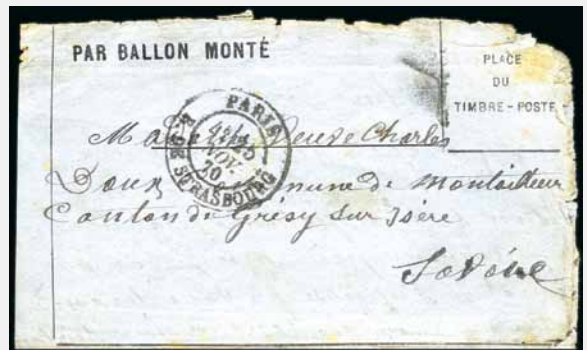 PAR BALLON MONTÉ
PLACE
DU
TIMBRE-POSTE
PARIS
R. DE STRASBOURG
NOV.
70
Veuve Charles
Doux Commune de Montailleur
Canton de Grésy sur Isère
Savoie